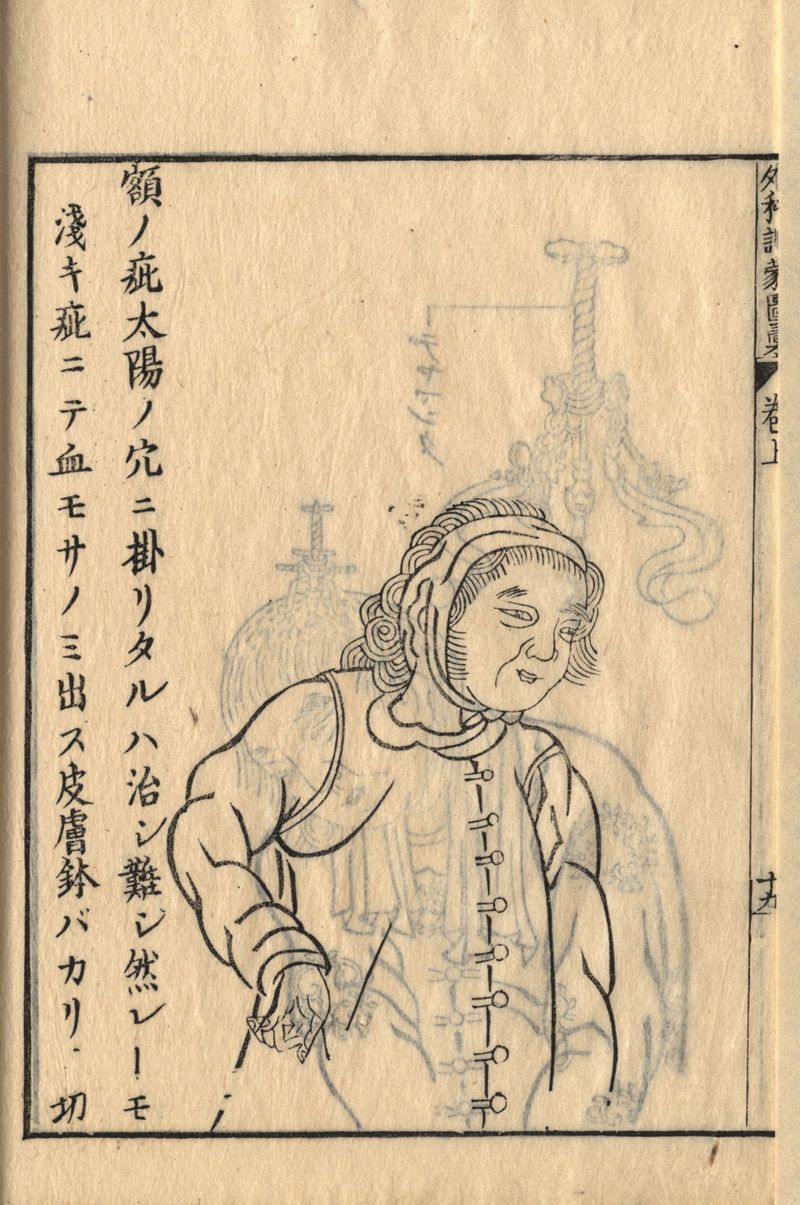 外科訓蒙圖彙 卷上
十五
額ノ疵太陽ノ穴ニ掛リタルハ治シ難シ然レーモ
淺キ疵ニテ血モサノミ出ス皮膚鉢バカリ切